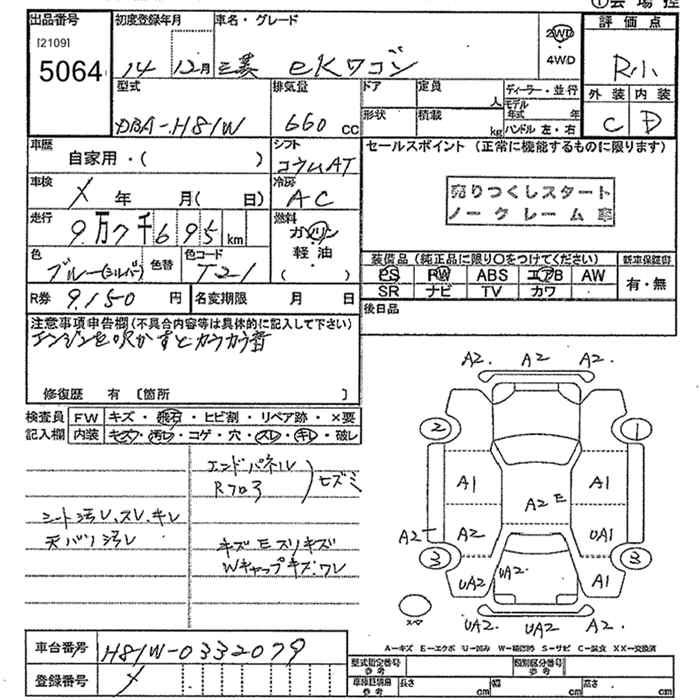 ①会場控
出品番号
[2109]
5064
初度登録年月
14 12月
車名・グレード
三菱 eKワゴン
2WD
・
4WD
評価点
R小
外装 内装
C D
型式
DBA-H81W
排気量
660 cc
ドア
定員
人
形状
積載
kg
ディーラー・並行
モデル年式 年
ハンドル 左・右
車歴
自家用・( )
シフト
コラムAT
車検
X 年 月( 日)
冷房
AC
走行
9万7千695 km
燃料
ガソリン
軽油
( )
色
ブルー(シルバー)
色替
色コード
T21
R券 9,150 円
名変期限 月 日
セールスポイント (正常に機能するものに限ります)
売りつくしスタート
ノークレーム車
装備品 (純正品に限り○をつけてください)
新車保証書
PS PW ABS エアB AW
SR ナビ TV カワ
有・無
後日品
注意事項申告欄(不具合内容等は具体的に記入して下さい)
エンジンを吹かすとカラカラ音
修復歴 有 〔箇所 〕
検査員
記入欄
FW キズ・飛石・ヒビ割・リペア跡・×要
内装 キズ・汚レ・コゲ・穴・スレ・キレ・破レ
エンドパネル
Rフロ3
ヒズミ
シート汚レ、スレ、キレ
天バリ汚レ
キズ E スリキズ
Wキャップキズ、ワレ
A2. A2 A2.
2 1
A1 A1
A2 E
A2 A2 UA1
3 3
UA2 UA2 A1
スペ
UA2 UA2 A2.
A—キズ E—エクボ U—凹み W—補修跡 S—サビ C—腐食 XX—交換済
車台番号 H81W-0332079
登録番号 X
型式指定番号
参考
類別区分番号
参考
車検証記載
参考
長さ cm
幅 cm
高さ cm